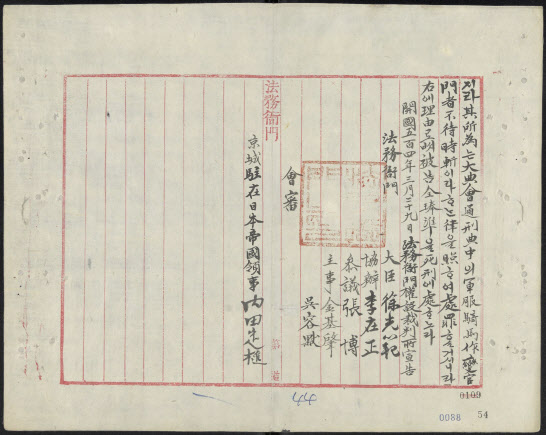 지라其所為는大典會通刑典中의軍服騎馬作變官
門者不待時斬이라ᄒᆞ는律을照ᄒᆞ여處罪ᄒᆞᆯ것시라
右에理由로明被告全琫準을死刑에處ᄒᆞ노라
開國五百四年三月二十九日法務衙門權設裁判所宣告
法務衙門
大臣 徐光範
協辦 李在正
參議 張博
主事 金基肇
吳容黙
會審
京城駐在日本帝國領事 內田定槌
法務衙門
0109
44
0088
54